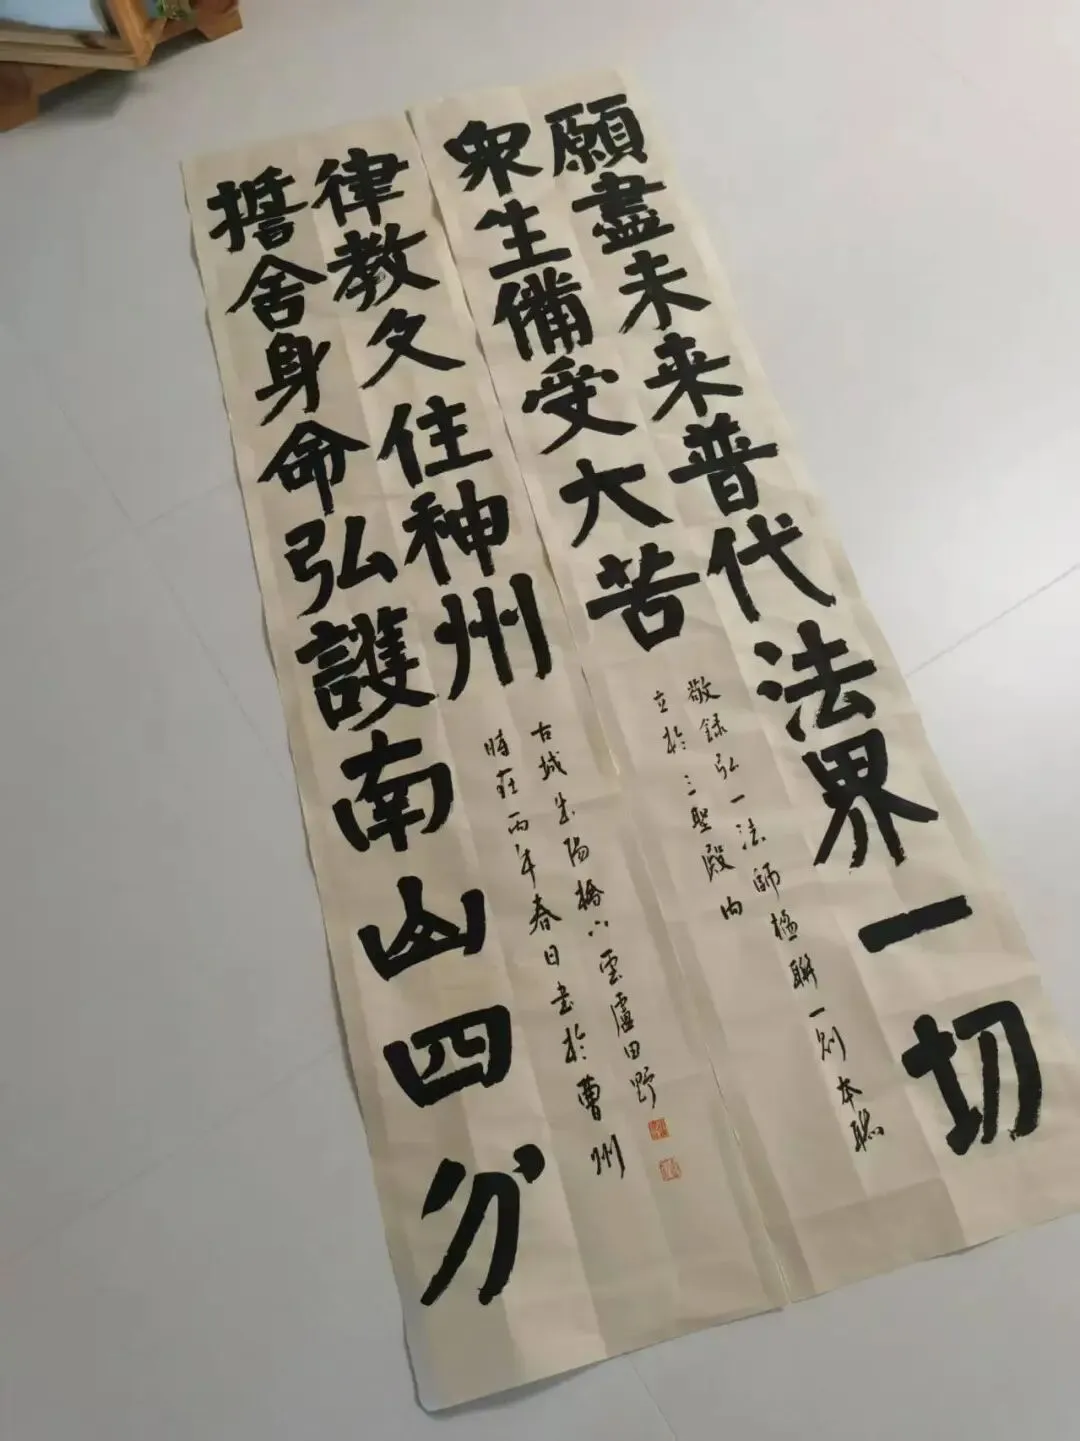 願盡未來普代法界一切
衆生備受大苦
敬錄弘一法師楹聯一則本聯
立於三聖殿內
誓舍身命弘護南山四分
律教久住神州
時在丙午春日書於曹州
古城陽雲廬田野